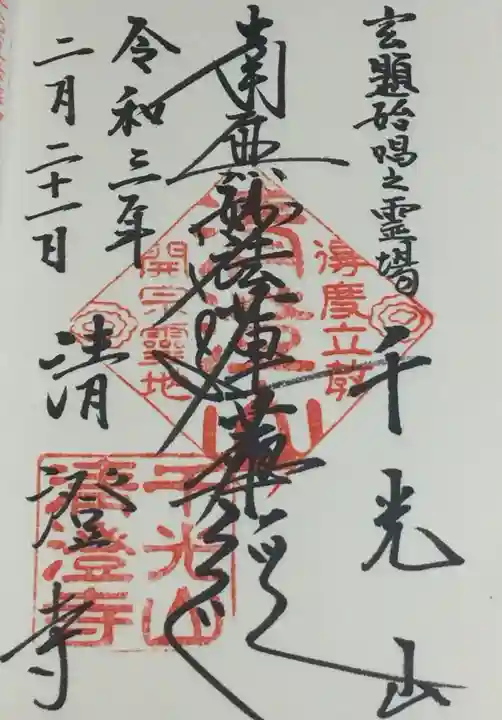 玄題始唱之霊場
千光山
南無妙法蓮華経
令和三年
二月二十一日
清澄寺
得度立教
清澄山
開宗霊地
千光山
清澄寺